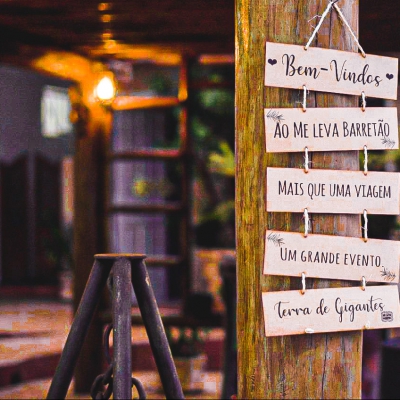 Bem-Vindos
Ao Me leva Barretão
Mais que uma viagem
Um grande evento
Terra de Gigantes